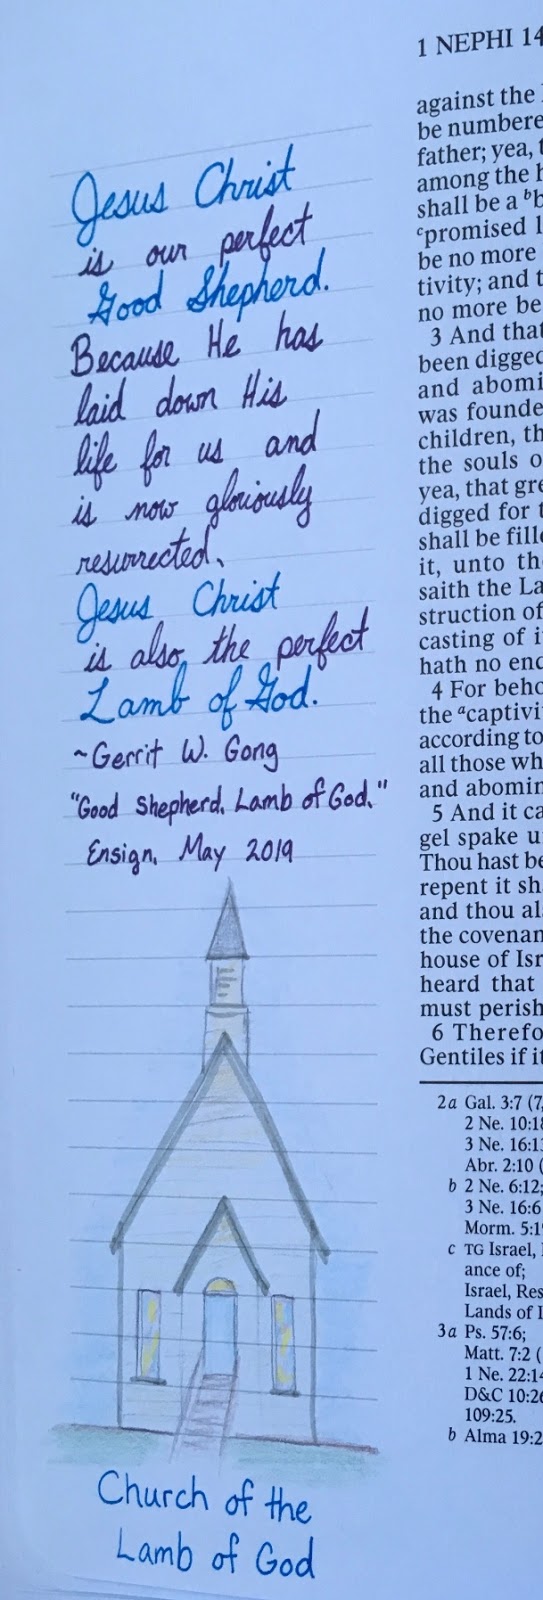 Jesus Christ
is our perfect
Good Shepherd.
Because He has
laid down His
life for us and
is now gloriously
resurrected,
Jesus Christ
is also, the perfect
Lamb of God.
~Gerrit W. Gong
"Good Shepherd, Lamb of God,"
Ensign, May 2019
Church of the
Lamb of God
1 NEPHI 14
against the
be numbere
father; yea,
among the
shall be a b
cpromised
be no more
tivity; and t
no more be
3 And that
been digged
and abomi
was founde
children, th
the souls o
yea, that gre
digged for t
shall be fille
it, unto th
saith the La
struction of
casting of i
hath no end
4 For beho
the acaptivi
according to
all those wh
and abomin
5 And it ca
gel spake u
Thou hast be
repent it sh
and thou al
the covenan
house of Isr
heard that
must perish
6 Therefo
Gentiles if it
2a Gal. 3:7 (7,
2 Ne. 10:18
3 Ne. 16:1
Abr. 2:10 (
b 2 Ne. 6:12;
3 Ne. 16:6
Morm. 5:1
c TG Israel,
ance of;
Israel, Res
Lands of I
3a Ps. 57:6;
Matt. 7:2 (
1 Ne. 22:14
D&C 10:26
109:25.
b Alma 19:2